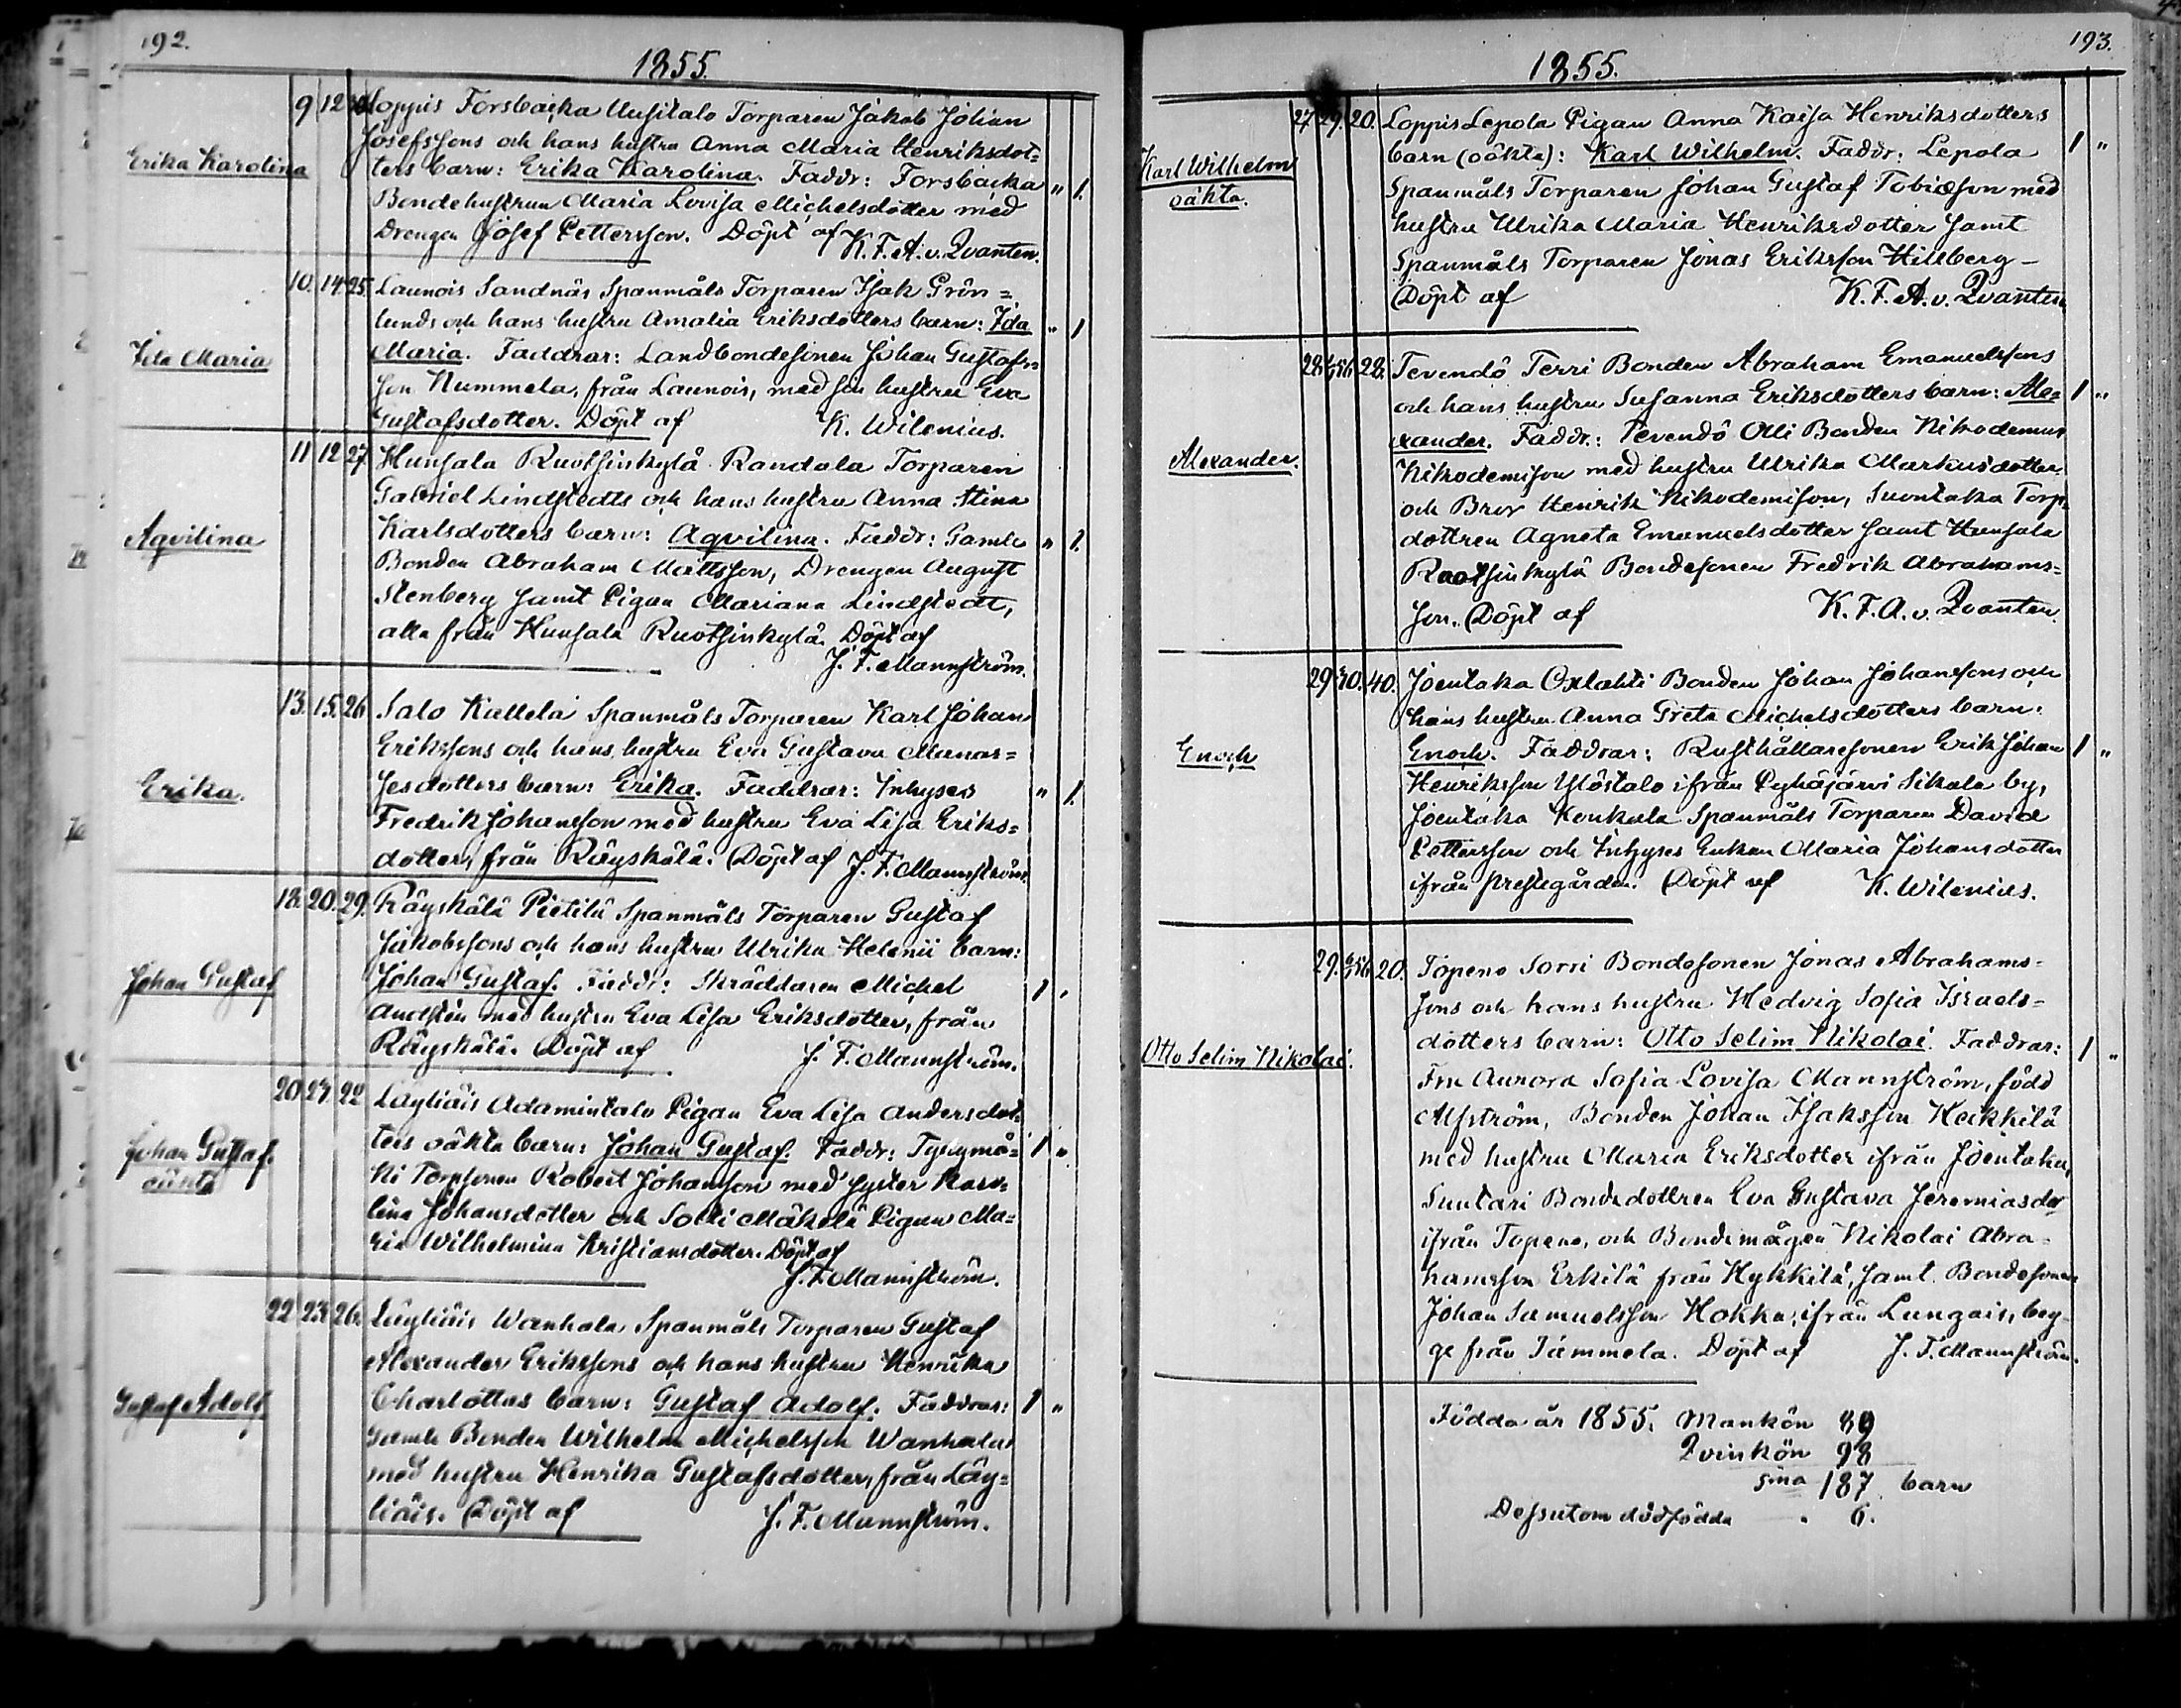 192.
1855.
Erika Karolina
9 12 Loppis Forsbacka Uusitalo Torparen Jakob Johan
Josefssons och hans hustru Anna Maria Henriksdot=
ters barn: Erika Karolina. Faddr: Forsbacka " 1.
Bondehustrun Maria Lovisa Michelsdotter med
Drengen Josef Pettersson. Döpt af K. F. A. v. Qvanten.
10. 14. 25. Launois Sandnäs Spanmåls Torparen Isak Grön=
lunds och hans hustru Amalia Eriksdotters barn: Ida " 1
Ida Maria
Maria. Faddrar: Landbondesonen Johan Gustafs=
son Nummela, från Launois, med sin hustru Eva
Gustafsdotter. Döpt af K. Wilenius.
11 12 27 Hunsala Ruotsinkylä Randala Torparen
Gabriel Lindstedts och hans hustru Anna Stina
Aqvilina
Karlsdotters barn: Aqvilina. Faddr: Gamle " 1.
Bonden Abraham Mattsson, Drengen August
Stenberg samt Pigan Mariana Lindstedt,
alla från Hunsala Ruotsinkylä. Döpt af
J. F. Mannström.
13. 15. 26 Salo Kallela Spanmåls Torparen Karl Johan
Erikssons och hans hustru Eva Gustava Manas=
Erika.
sesdotters barn: Erika. Faddrar: Inhyses " 1.
Fredrik Johansson med hustru Eva Lisa Eriks=
dotter, från Räyskälä. Döpt af J. F. Mannström.
18. 20. 29. Räyskälä Pietilä Spanmåls Torparen Gustaf
Jakobssons och hans hustru Ulrika Helenii barn:
Johan Gustaf
Johan Gustaf. Faddr: Skräddaren Michel 1 "
Andstén med hustru Eva Lisa Eriksdotter, från
Räyskälä. Döpt af J. F. Mannström.
20 23 22 Läyliäis Adamintalo Pigan Eva Lisa Andersdot=
Johan Gustaf.
oäkta
ters oäkta barn: Johan Gustaf. Faddr: 1 "
ki Torpsonen Robert Johansson med syster Karo=
lina Johansdotter och Sokli Mäkelä Pigan Ma=
ria Wilhelmina Kristiansdotter. Döpt af
J. F. Mannström.
22 23 26. Läyliäis Wanhala Spanmåls Torparen Gustaf
Alexander Erikssons och hans hustru Henrika
Gustaf Adolf
Charlottas barn: Gustaf Adolf. Faddrar: 1 "
Gamle Bonden Wilhelm Michelsson Wanhala
med hustru Henrika Gustafsdotter, från Läy=
liäis. Döpt af J. F. Mannström.
193.
1855.
27 29. 20. Loppis Lepola Pigan Anna Kaisa Henriksdotters
Karl Wilhelm
oäkta.
barn (oäkta): Karl Wilhelm. Faddr: Lepola 1 "
Spanmåls Torparen Johan Gustaf Tobiæson med
hustru Ulrika Maria Henriksdotter samt
Spanmåls Torparen Jonas Eriksson Hillberg –
Döpt af K. F. A. v. Qvanten
28. 56 28. Tevendö Terri Bonden Abraham Emanuelssons
och hans hustru Susanna Eriksdotters barn: Ale= 1 "
Alexander.
xander. Faddr: Tevendö Olli Bonden Nikodemus
Nikodemison med hustru Ulrika Markusdotter
och Bror Henrik Nikodemison, Suontaka Torp.
dottren Agneta Emanuelsdotter samt Hunsala
Ruotsinkylä Bondesonen Fredrik Abrahams=
son. Döpt af K. F. A. v. Qvanten.
29. 30. 40. Joentaka Oxlahti Bonden Johan Johanssons och
hans hustru Anna Greta Michelsdotters barn:
Enoch
Enoch. Faddrar: Rusthållaresonen Erik Johan 1 "
Henriksson Ylöstalo ifrån Pyhäjärvi Sikala by,
Joentaka Konkala Spanmåls Torparen David
Pettersson och Inhyses Enkan Maria Johansdotter
ifrån prestegården. Döpt af K. Wilenius.
29. 56 20. Topeno Sorri Bondesonen Jonas Abrahams=
sons och hans hustru Hedvig Sofia Israels=
Otto Selim Nikolai.
dotters barn: Otto Selim Nikolai. Faddrar: 1 "
Fru Aurora Sofia Lovisa Mannström, född
Alfström, Bonden Johan Isaksson Heikkilä
med hustru Maria Eriksdotter ifrån Joentaka,
Suutari Bondedottren Eva Gustava Jeremiasdr
ifrån Topeno, och Bondemågen Nikolai Abra=
hamsson Erkilä från Hykkilä, samt Bondesonen
Johan Samuelsson Hokka, ifrån Lungais, beg=
ge från Tammela. Döpt af J. F. Mannström.
Födda år 1855. Mankön 89
Qvinkön 98
sma 187 barn
Dessutom dödfödda . 6.